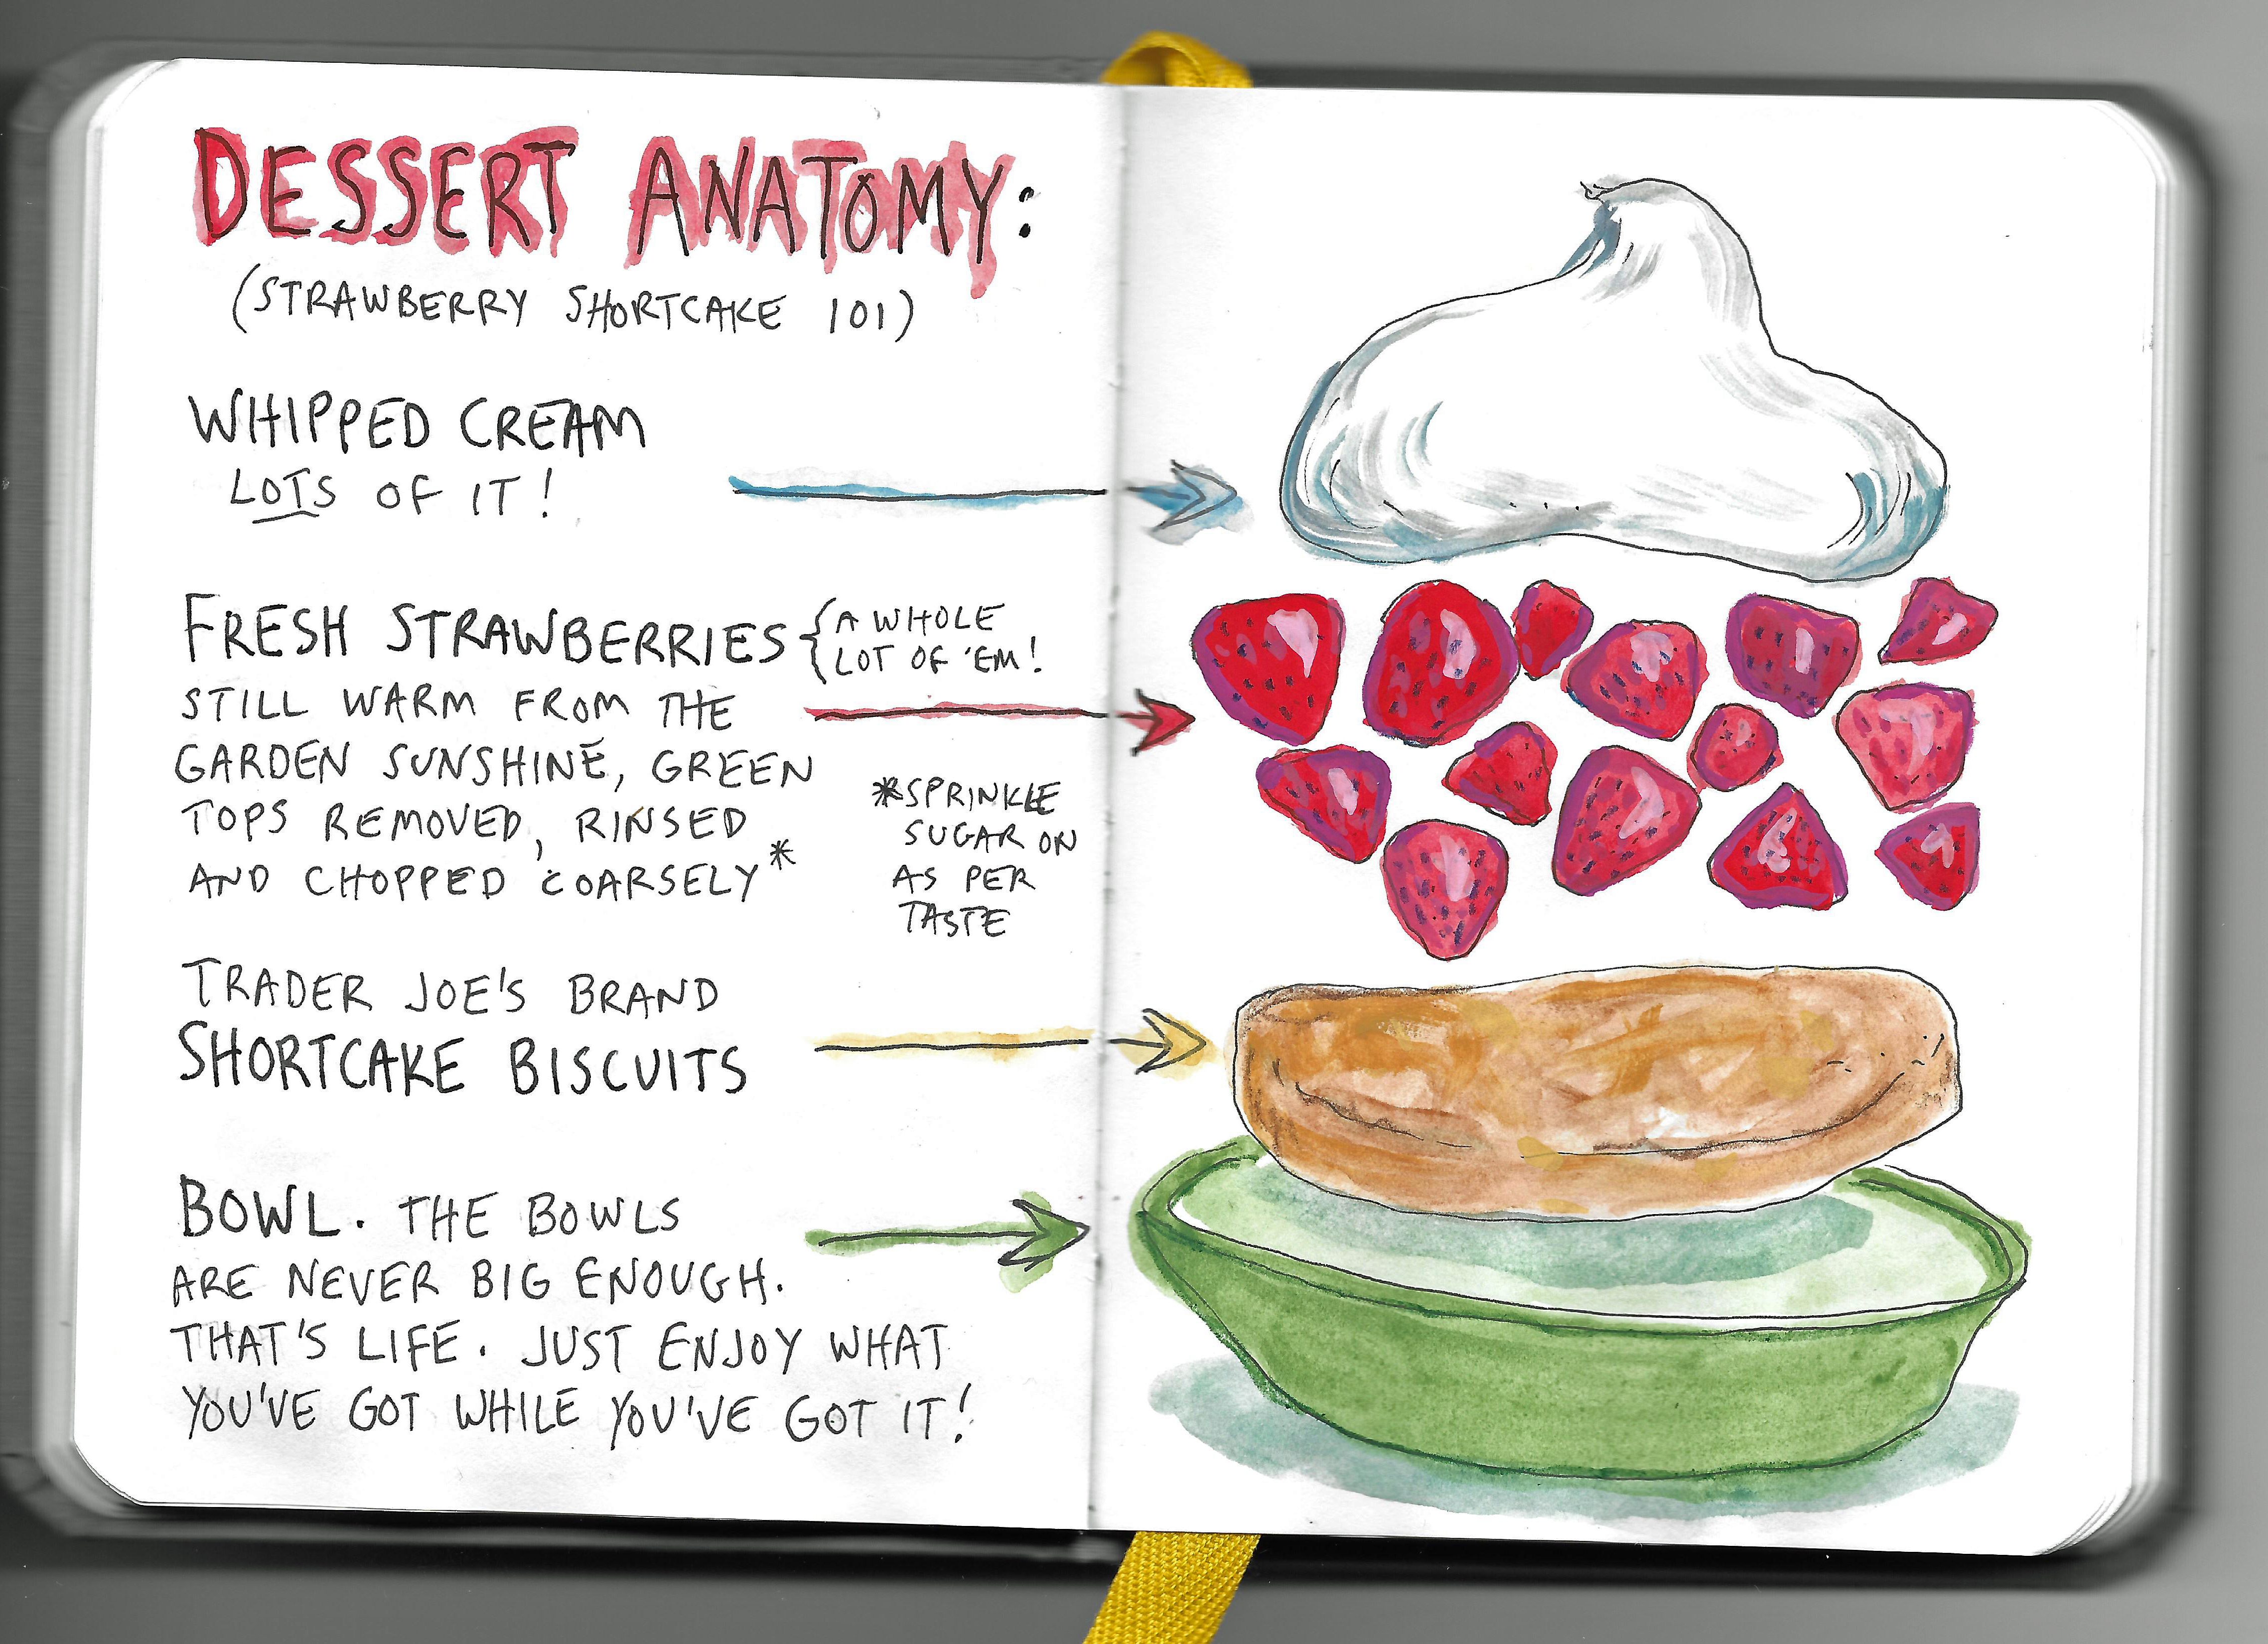 DESSERT ANATOMY:
(STRAWBERRY SHORTCAKE 101)
WHIPPED CREAM
LOTS OF IT!
FRESH STRAWBERRIES
{A WHOLE
LOT OF 'EM!
STILL WARM FROM THE
GARDEN SUNSHINE, GREEN
TOPS REMOVED, RINSED
AND CHOPPED COARSELY*
*SPRINKLE
SUGAR ON
AS PER
TASTE
TRADER JOE'S BRAND
SHORTCAKE BISCUITS
BOWL. THE BOWLS
ARE NEVER BIG ENOUGH.
THAT'S LIFE. JUST ENJOY WHAT
YOU'VE GOT WHILE YOU'VE GOT IT!